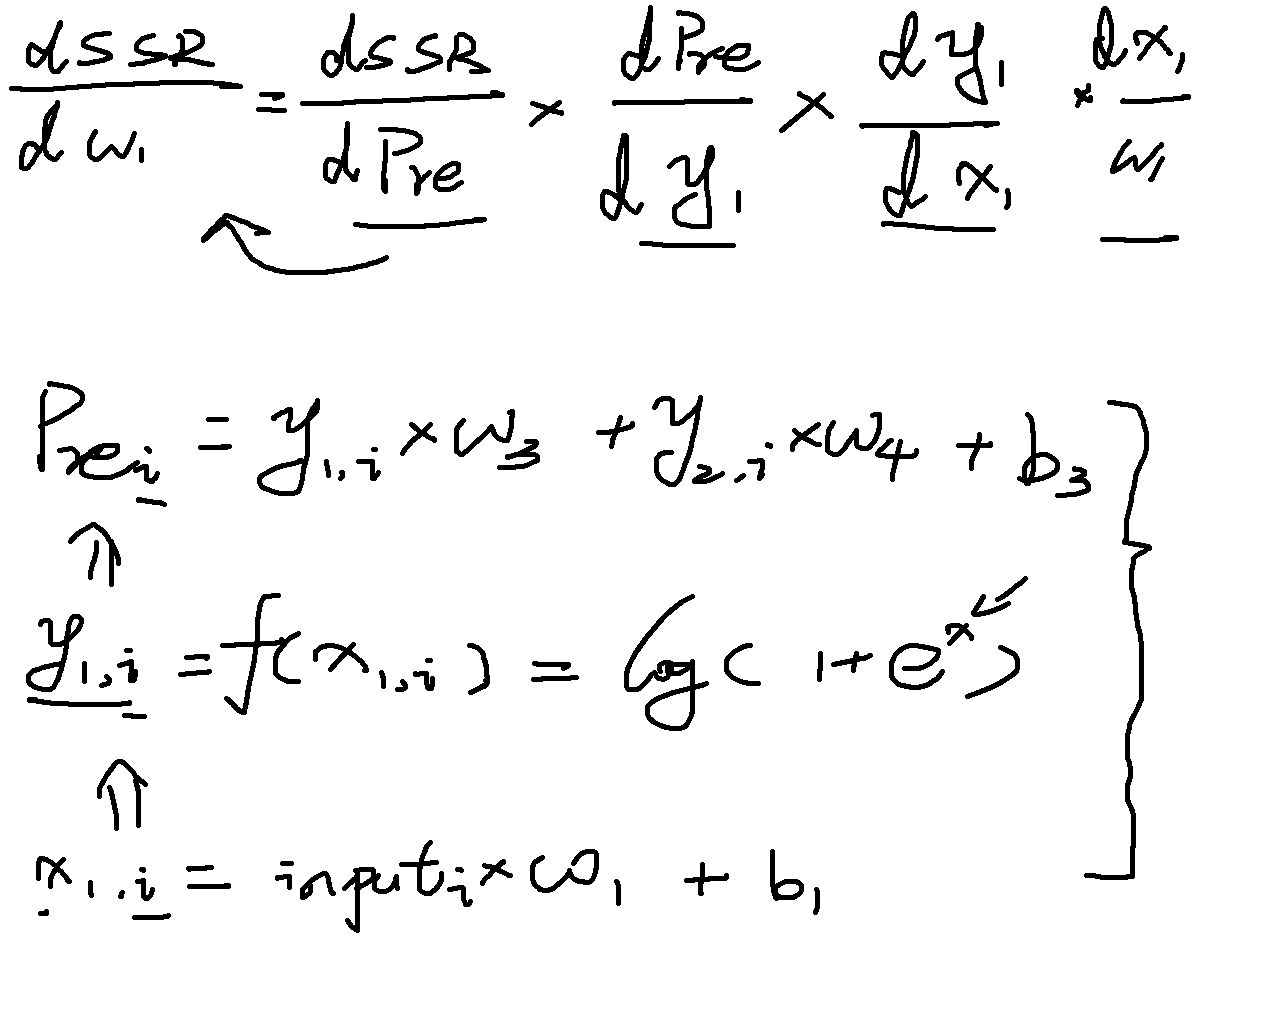 dSSR/dw₁ = dSSR/dPre × dPre/dy₁ × dy₁/dx₁ × dx₁/w₁
Preᵢ = y₁,ᵢ × w₃ + y₂,ᵢ × w₄ + b₃
⇑
y₁,ᵢ = f(x₁,ᵢ) = log(1+eˣ)
⇑
x₁.ᵢ = inputᵢ × w₁ + b₁